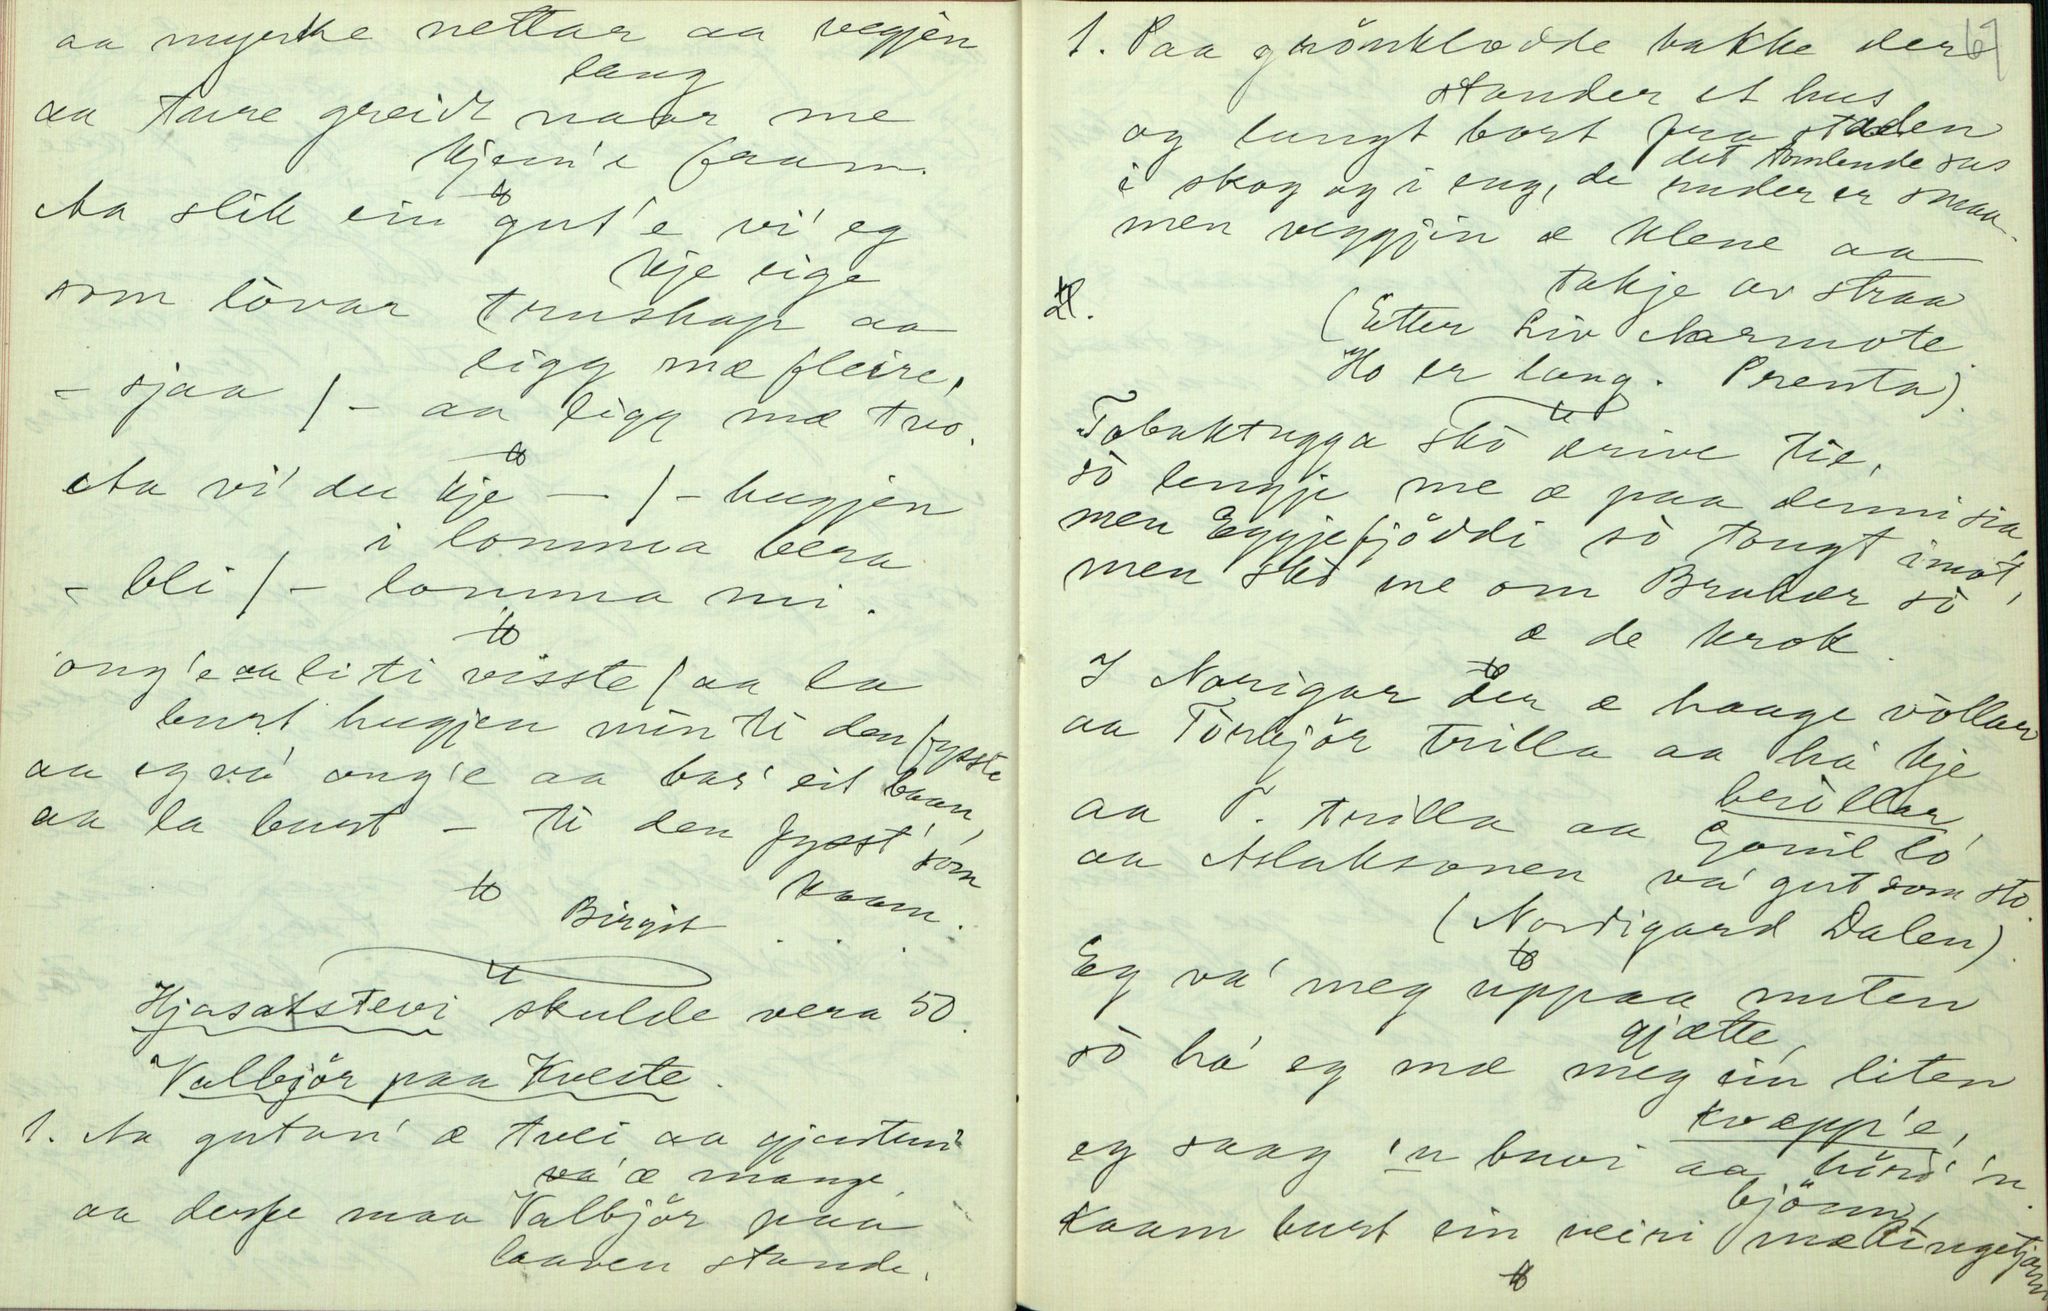 aa myrke nettar aa vegjen
lang
aa taare greidt naar me
kjem'e fraam.
Aa slik ein gut'e vi' eg
kje eige
som lovar truskap aa
ligg mæ fleire,
- sjaa / - aa ligg mæ tvo.
Aa vi' du kje - / - hugjen
i lomma bera
- bli / - lomma mi.
ong'e aa liti visste / aa la
burt hugjen min ti den fysste
aa eg va' ong'e aa bar' eit baan,
aa la burt - ti den fysst' som
kaam.
Birgit . . .
Hjasatstevi skulde vera 50.
Valbjör paa Kveste.
1. Aa gutan' æ tvei aa gjentun'
va' æ mange
aa derfe maa Valbjör paa
laaven stande.
69
1. Paa grönklædde bakke der
stander et hus
og langt bort fra staden
det tomlende sus
i skog og i eng, de ruder er smaa
men veggjin æ klene aa
takje av straa
(Etter Liv Aarmote
Ho er lang. Prenta).
Tobaktugga sko drive tie,
so lengje me æ paa denni sia
men Eggjefjøddi so tongt imot,
men sko me om Brukar so
æ de krok.
I Norigar der æ haage vollar
aa Torbjör trilla aa ha kje
brillar,
aa T. trilla aa Gomil lo
aa Aslaksonen va' gut som sto.
(Nordigard Dalen).
Eg va' meg uppaa nuten
gjætte
so ha' eg mæ meg ein liten
kvæpp'e,
eg saag 'n buvi aa hörd' 'n
björn,
kaam burt ein veiri mæ Ringetjørn